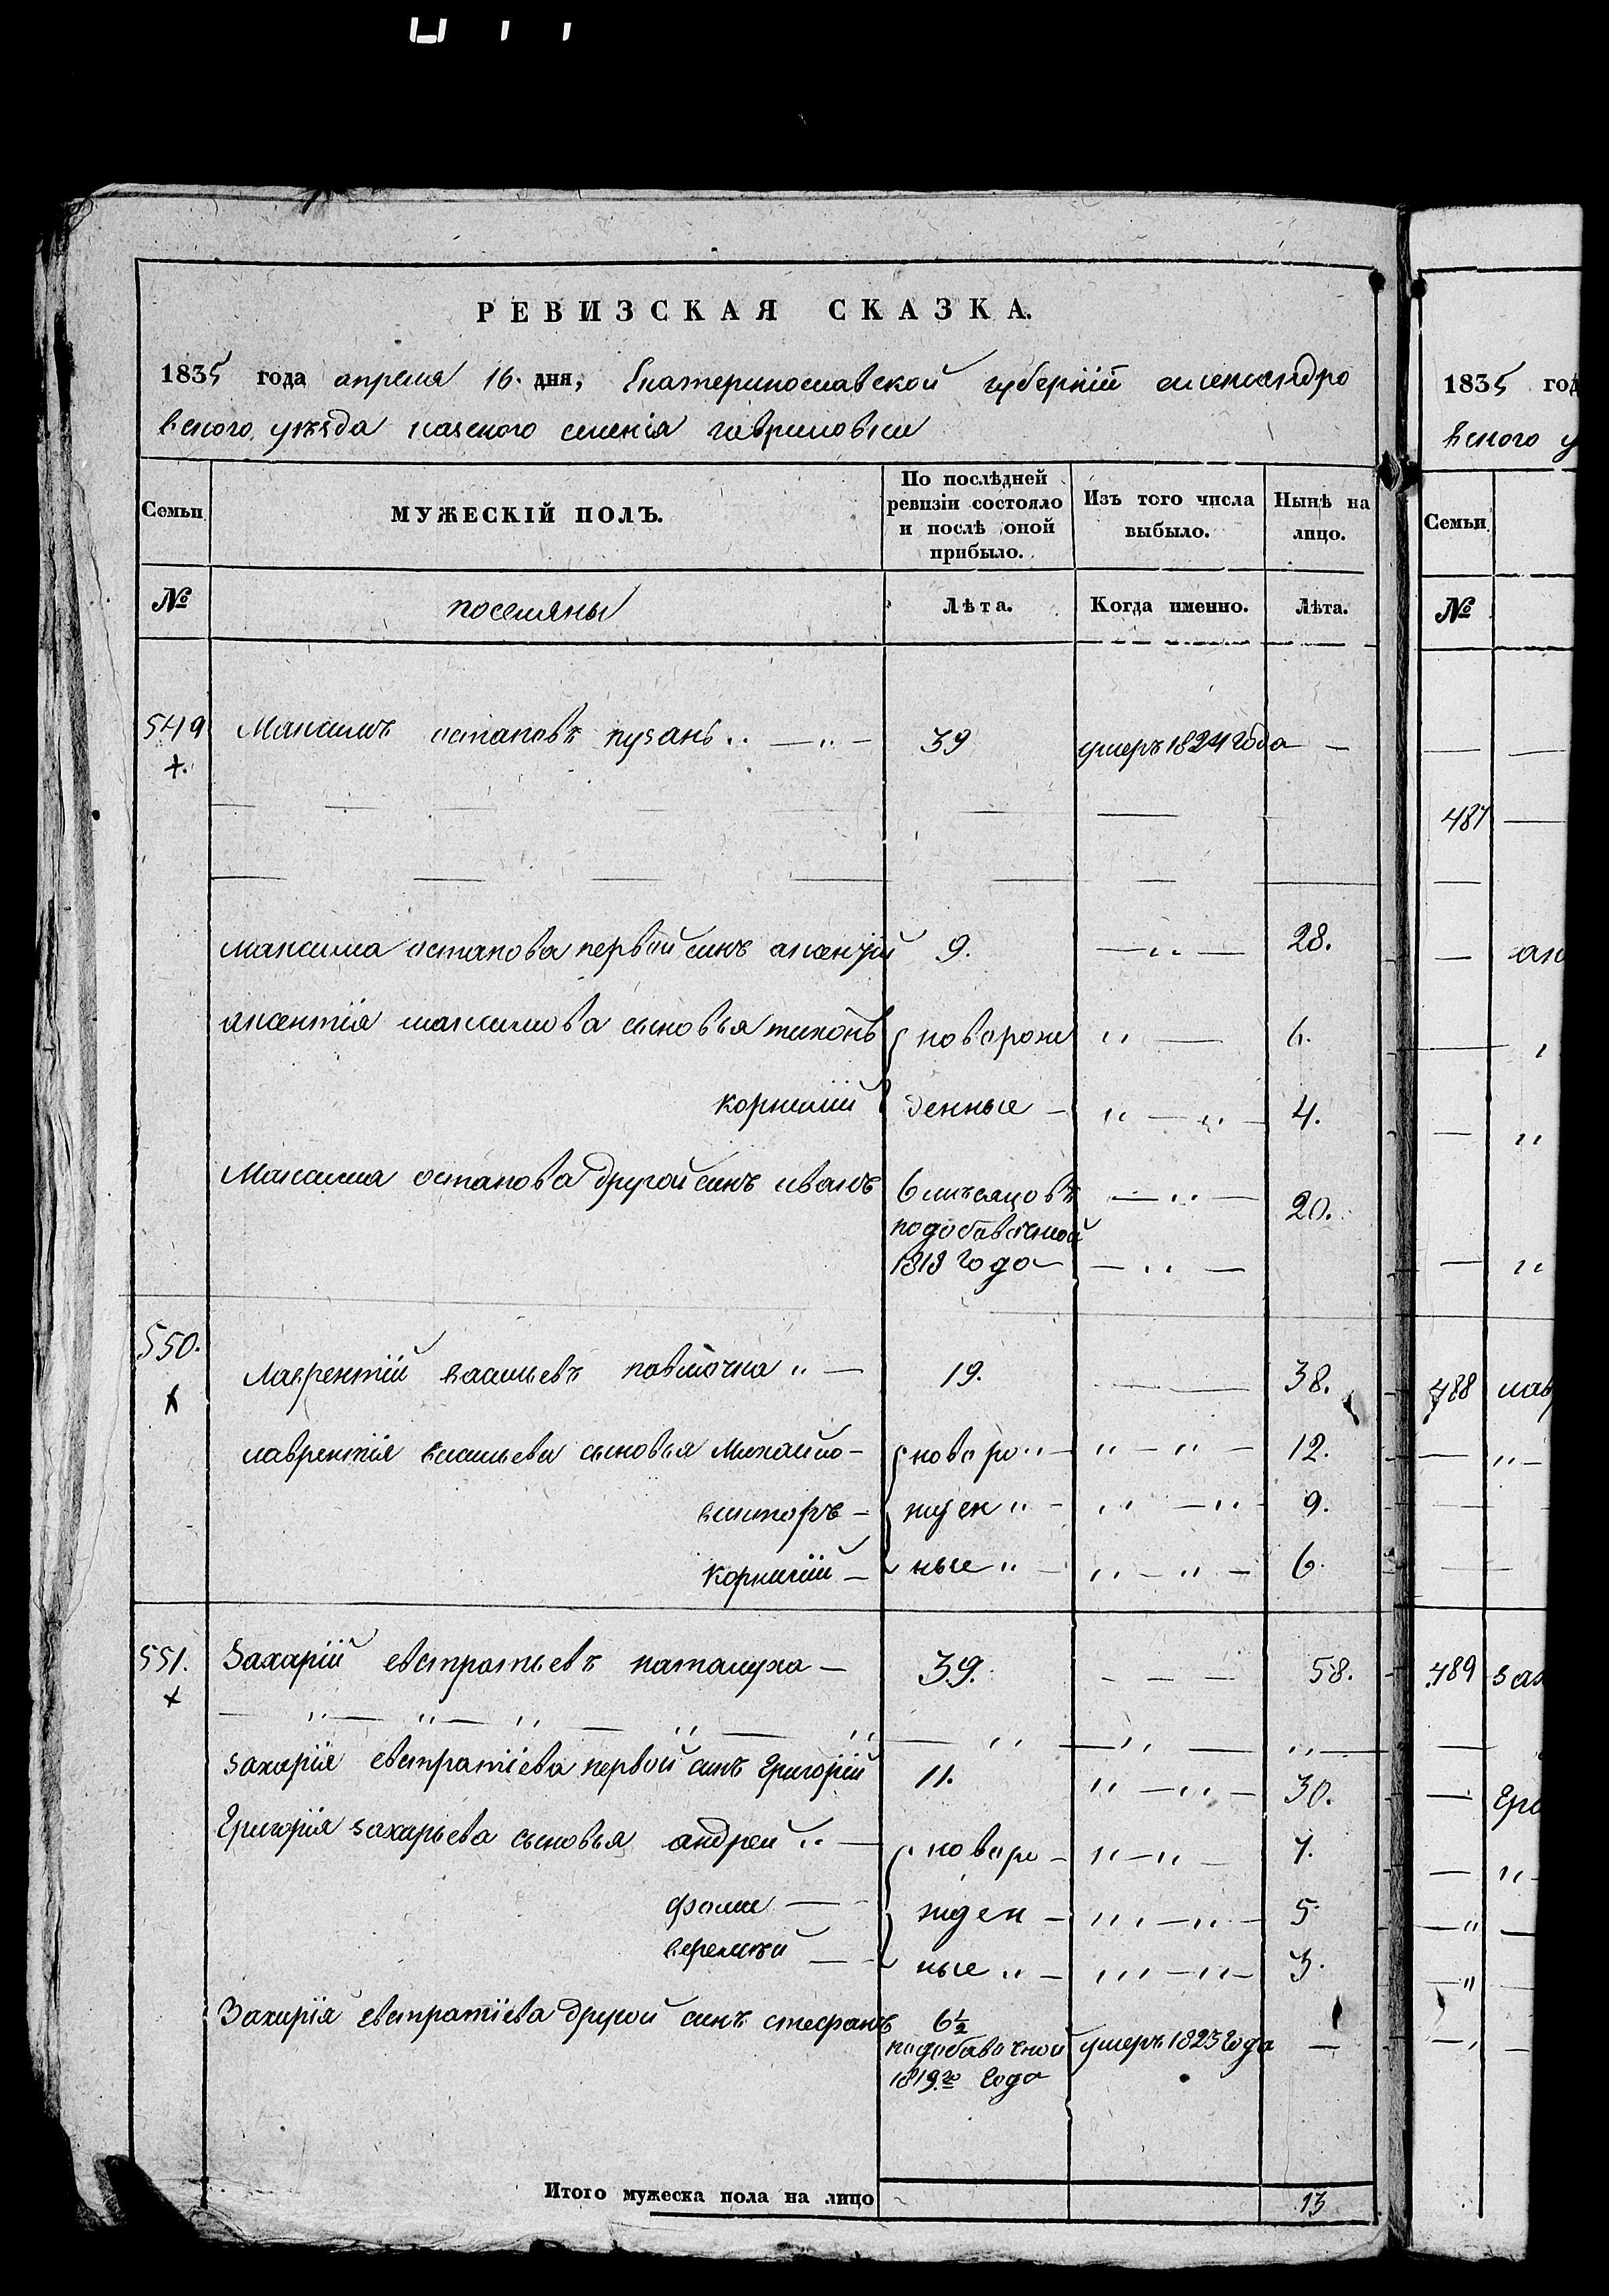 РЕВИЗСКАЯ СКАЗКА.
1835 года апреля 16. дня, Екатеринославской губерніи александро
вского уѣзда казеного селенія гавриловки
Семьи
МУЖЕСКІЙ ПОЛЪ.
По послѣдней ревизіи состояло и послѣ оной прибыло.
Изъ того числа выбыло.
Нынѣ на лицо.
№ поселяны Лѣта. Когда именно. Лѣта.
549 Максимъ остаповъ пузанъ 39 умеръ 1824 года —
максима остапова первой синъ аксентій 9. 28.
аксентія максимова сыновья тихонъ новорож 6.
корнилій денные 4.
Максима остапова другой синъ иванъ 6 мѣсяцовъ 20.
подобавочной
1818 года
550. Лаврентій васильевъ 19. 38.
лаврентія васильева сыновья Михайло новоро 12.
викторъ жден 9.
Корнилій ные 6.
551. Захарій евстратьевъ паталуха 39. 58.
захарія евстратіева первой синъ Григорій 11. 30.
Григорія захарьева сыновья андрей новоро 7.
фома жден 5
еремѣй ные 3.
Захарія евстратіева другой синъ стефанъ 6½ умеръ 1823 года —
подобавочной
1819.го года
Итого мужеска пола на лицо 13
1835 год
вского у
Семьи
№
487
488 лав
489 зах